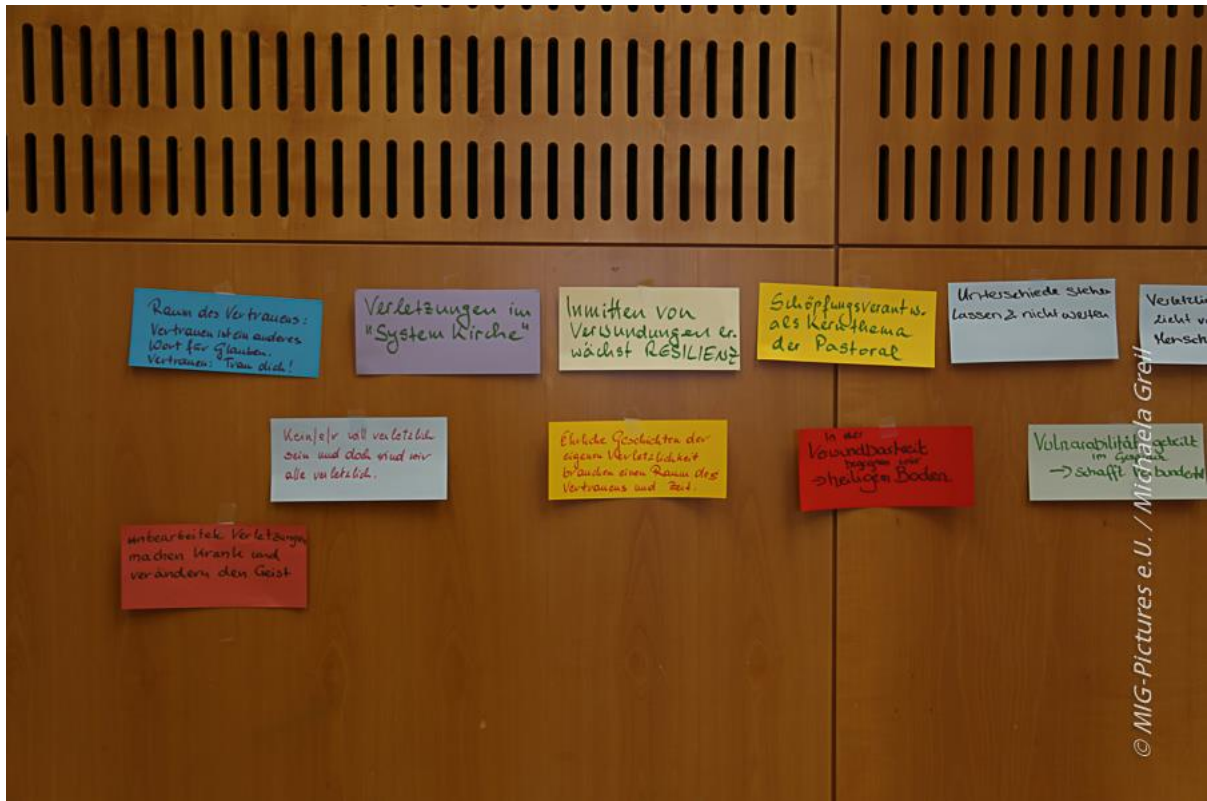 Raum des Vertrauens:
Vertrauen ist ein anderes
Wort für Glauben.
Vertrauen: Trau dich!
Verletzungen im
"System Kirche"
Inmitten von
Verwundungen er-
wächst RESILIENZ
Schöpfungsverantw.
als Kernthema
der Pastoral
Unterschiede stehen
lassen & nicht werten
Verletzlic
zieht
Mensch
Kein/e/r will verletzlich
sein und doch sind wir
alle verletzlich.
Ehrliche Geschichten der
eigenen Verletzlichkeit
brauchen einen Raum des
Vertrauens und Zeit.
In der
Verwundbarkeit
begegnen wir
→ heiligem Boden
Vulnerabilität geteilt
im
→ schafft Verbundenhei
unbearbeitete Verletzungen
machen krank und
verändern den Geist
© MIG-Pictures e.U. / Michaela Greil